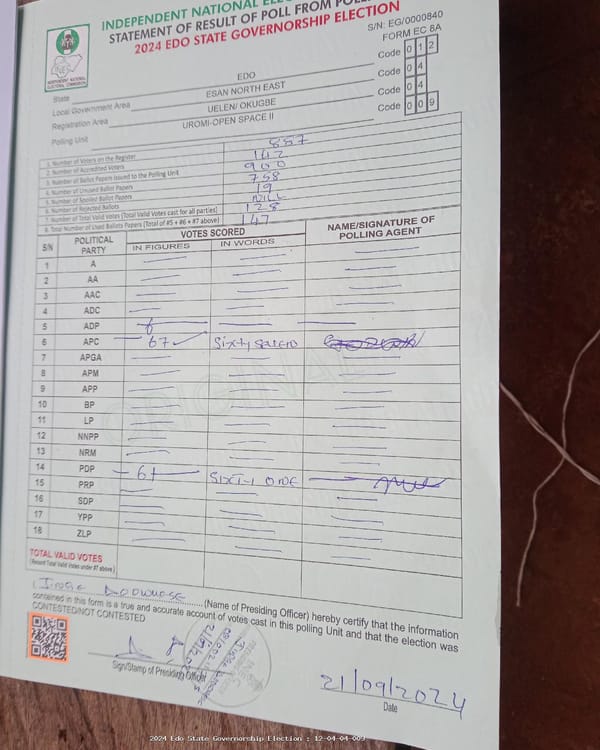 INDEPENDENT NATIONAL ELE
STATEMENT OF RESULT OF POLL FROM POLL
2024 EDO STATE GOVERNORSHIP ELECTION
INDEPENDENT NATIONAL
ELECTORAL COMMISSION
S/N: EG/0000840
FORM EC 8A
State EDO Code 0 1 2
Local Government Area ESAN NORTH EAST Code 0 4
Registration Area UELEN/ OKUGBE Code 0 4
Polling Unit UROMI-OPEN SPACE II Code 0 0 9
1. Number of Voters on the Register 557
2. Number of Accredited Voters 142
3. Number of Ballot Papers Issued to the Polling Unit 900
4. Number of Unused Ballot Papers 758
5. Number of Spoiled Ballot Papers 19
6. Number of Rejected Ballots NILL
7. Number of Total Valid Votes (Total Valid Votes cast for all parties) 128
8. Total Number of Used Ballots Papers (Total of #5 + #6 + #7 above) 147
S/N POLITICAL PARTY VOTES SCORED NAME/SIGNATURE OF POLLING AGENT
IN FIGURES IN WORDS
1 A
2 AA
3 AAC
4 ADC
5 ADP
6 APC 67 Sixty seven
7 APGA
8 APM
9 APP
10 BP
11 LP
12 NNPP
13 NRM
14 PDP 61 SIXTY ONE
15 PRP
16 SDP
17 YPP
18 ZLP
ORIGINAL
TOTAL VALID VOTES
(Record Total Valid Votes under #7 above)
I, (Name of Presiding Officer) hereby certify that the information
contained in this form is a true and accurate account of votes cast in this polling Unit and that the election was
CONTESTED/NOT CONTESTED
Sign/Stamp of Presiding Officer
21/09/2024
Date
2024 Edo State Governorship Election : 12-04-04-009